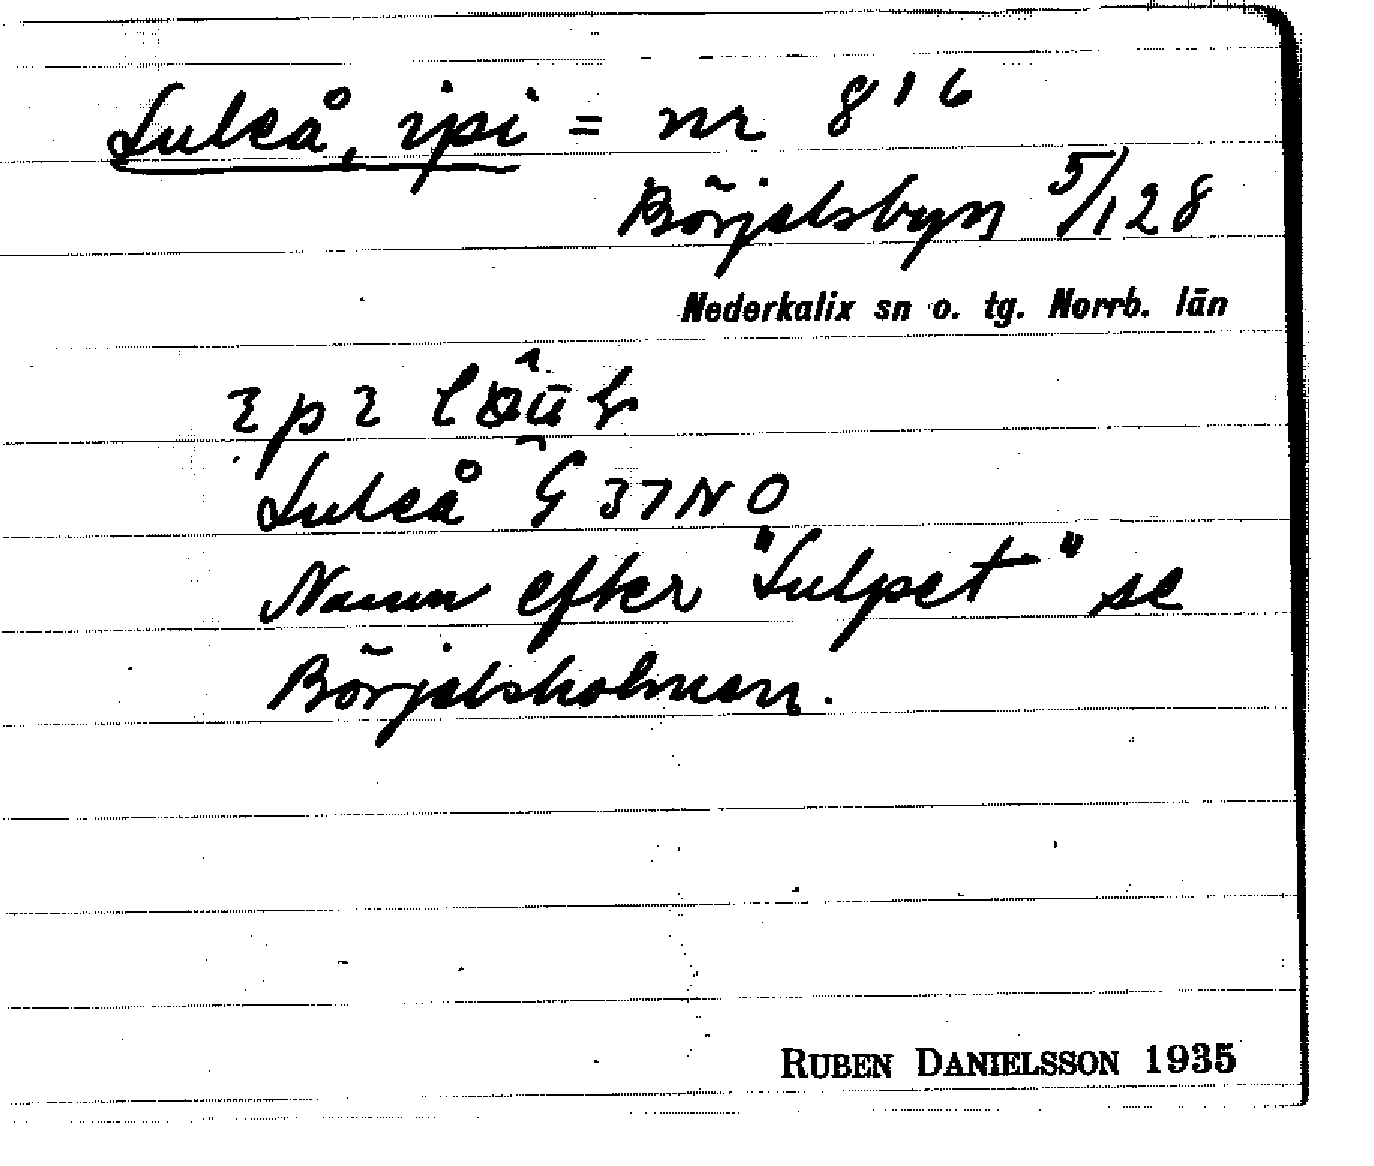 Luleå, ipi = nr 816
Börjelsbyn 5/128
Nederkalix sn o. tg. Norrb. län
Luleå G 37 NO
Namn efter "Lulpet" se
Börjelsholmen.
RUBEN DANIELSSON 1935